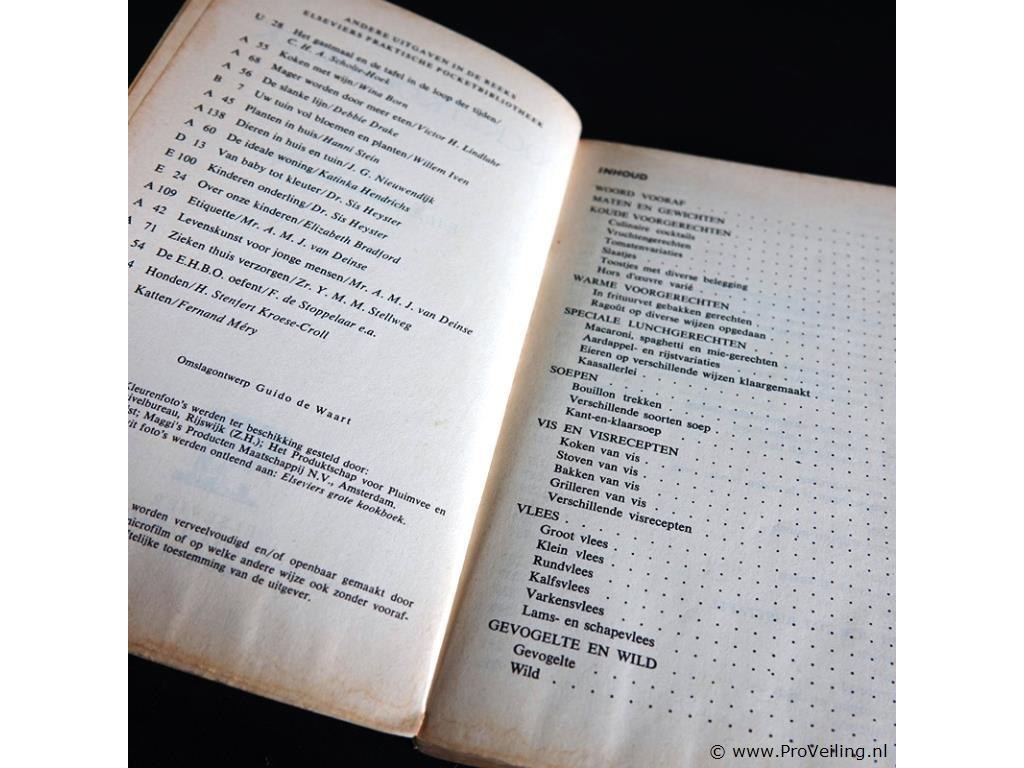 ANDERE UITGAVEN IN DE REEKS
ELSEVIERS PRAKTISCHE POCKETBIBLIOTHEEK
U 28 Het gastmaal en de tafel in de loop der tijden/
C. H. A. Scholte-Hoek
A 55 Koken met wijn/Wina Born
A 68 Mager worden door meer eten/Victor H. Lindlahr
A 56 De slanke lijn/Debbie Drake
B 7 Uw tuin vol bloemen en planten/Willem Iven
A 45 Planten in huis/Hanni Stein
A 138 Dieren in huis en tuin/J. G. Nieuwendijk
A 60 De ideale woning/Katinka Hendrichs
D 13 Van baby tot kleuter/Dr. Sis Heyster
E 100 Kinderen onderling/Dr. Sis Heyster
E 24 Over onze kinderen/Elizabeth Bradford
A 109 Etiquette/Mr. A. M. J. van Deinse
A 42 Levenskunst voor jonge mensen/Mr. A. M. J. van Deinse
71 Zieken thuis verzorgen/Zr. Y. M. M. Stellweg
54 De E.H.B.O. oefent/F. de Stoppelaar e.a.
4 Honden/H. Stenfert Kroese-Croll
Katten/Fernand Méry
Omslagontwerp Guido de Waart
Kleurenfoto's werden ter beschikking gesteld door:
ivelbureau, Rijswijk (Z.H.); Het Produktschap voor Pluimvee en
Maggi's Producten Maatschappij N.V., Amsterdam.
foto's werden ontleend aan: Elseviers grote kookboek.
worden verveelvoudigd en/of openbaar gemaakt door
microfilm of op welke andere wijze ook zonder vooraf-
telijke toestemming van de uitgever.
INHOUD
WOORD VOORAF
MATEN EN GEWICHTEN
KOUDE VOORGERECHTEN
Culinaire cocktails
Vruchtengerechten
Tomatenvariaties
Slaatjes
Toostjes met diverse belegging
Hors d'œuvre varié
WARME VOORGERECHTEN
In frituurvet gebakken gerechten
Ragoût op diverse wijzen opgedaan
SPECIALE LUNCHGERECHTEN
Macaroni, spaghetti en mie-gerechten
Aardappel- en rijstvariaties
Eieren op verschillende wijzen klaargemaakt
Kaasallerlei
SOEPEN
Bouillon trekken
Verschillende soorten soep
Kant-en-klaarsoep
VIS EN VISRECEPTEN
Koken van vis
Stoven van vis
Bakken van vis
Grilleren van vis
Verschillende visrecepten
VLEES
Groot vlees
Klein vlees
Rundvlees
Kalfsvlees
Varkensvlees
Lams- en schapevlees
GEVOGELTE EN WILD
Gevogelte
Wild
© www.ProVeiling.nl